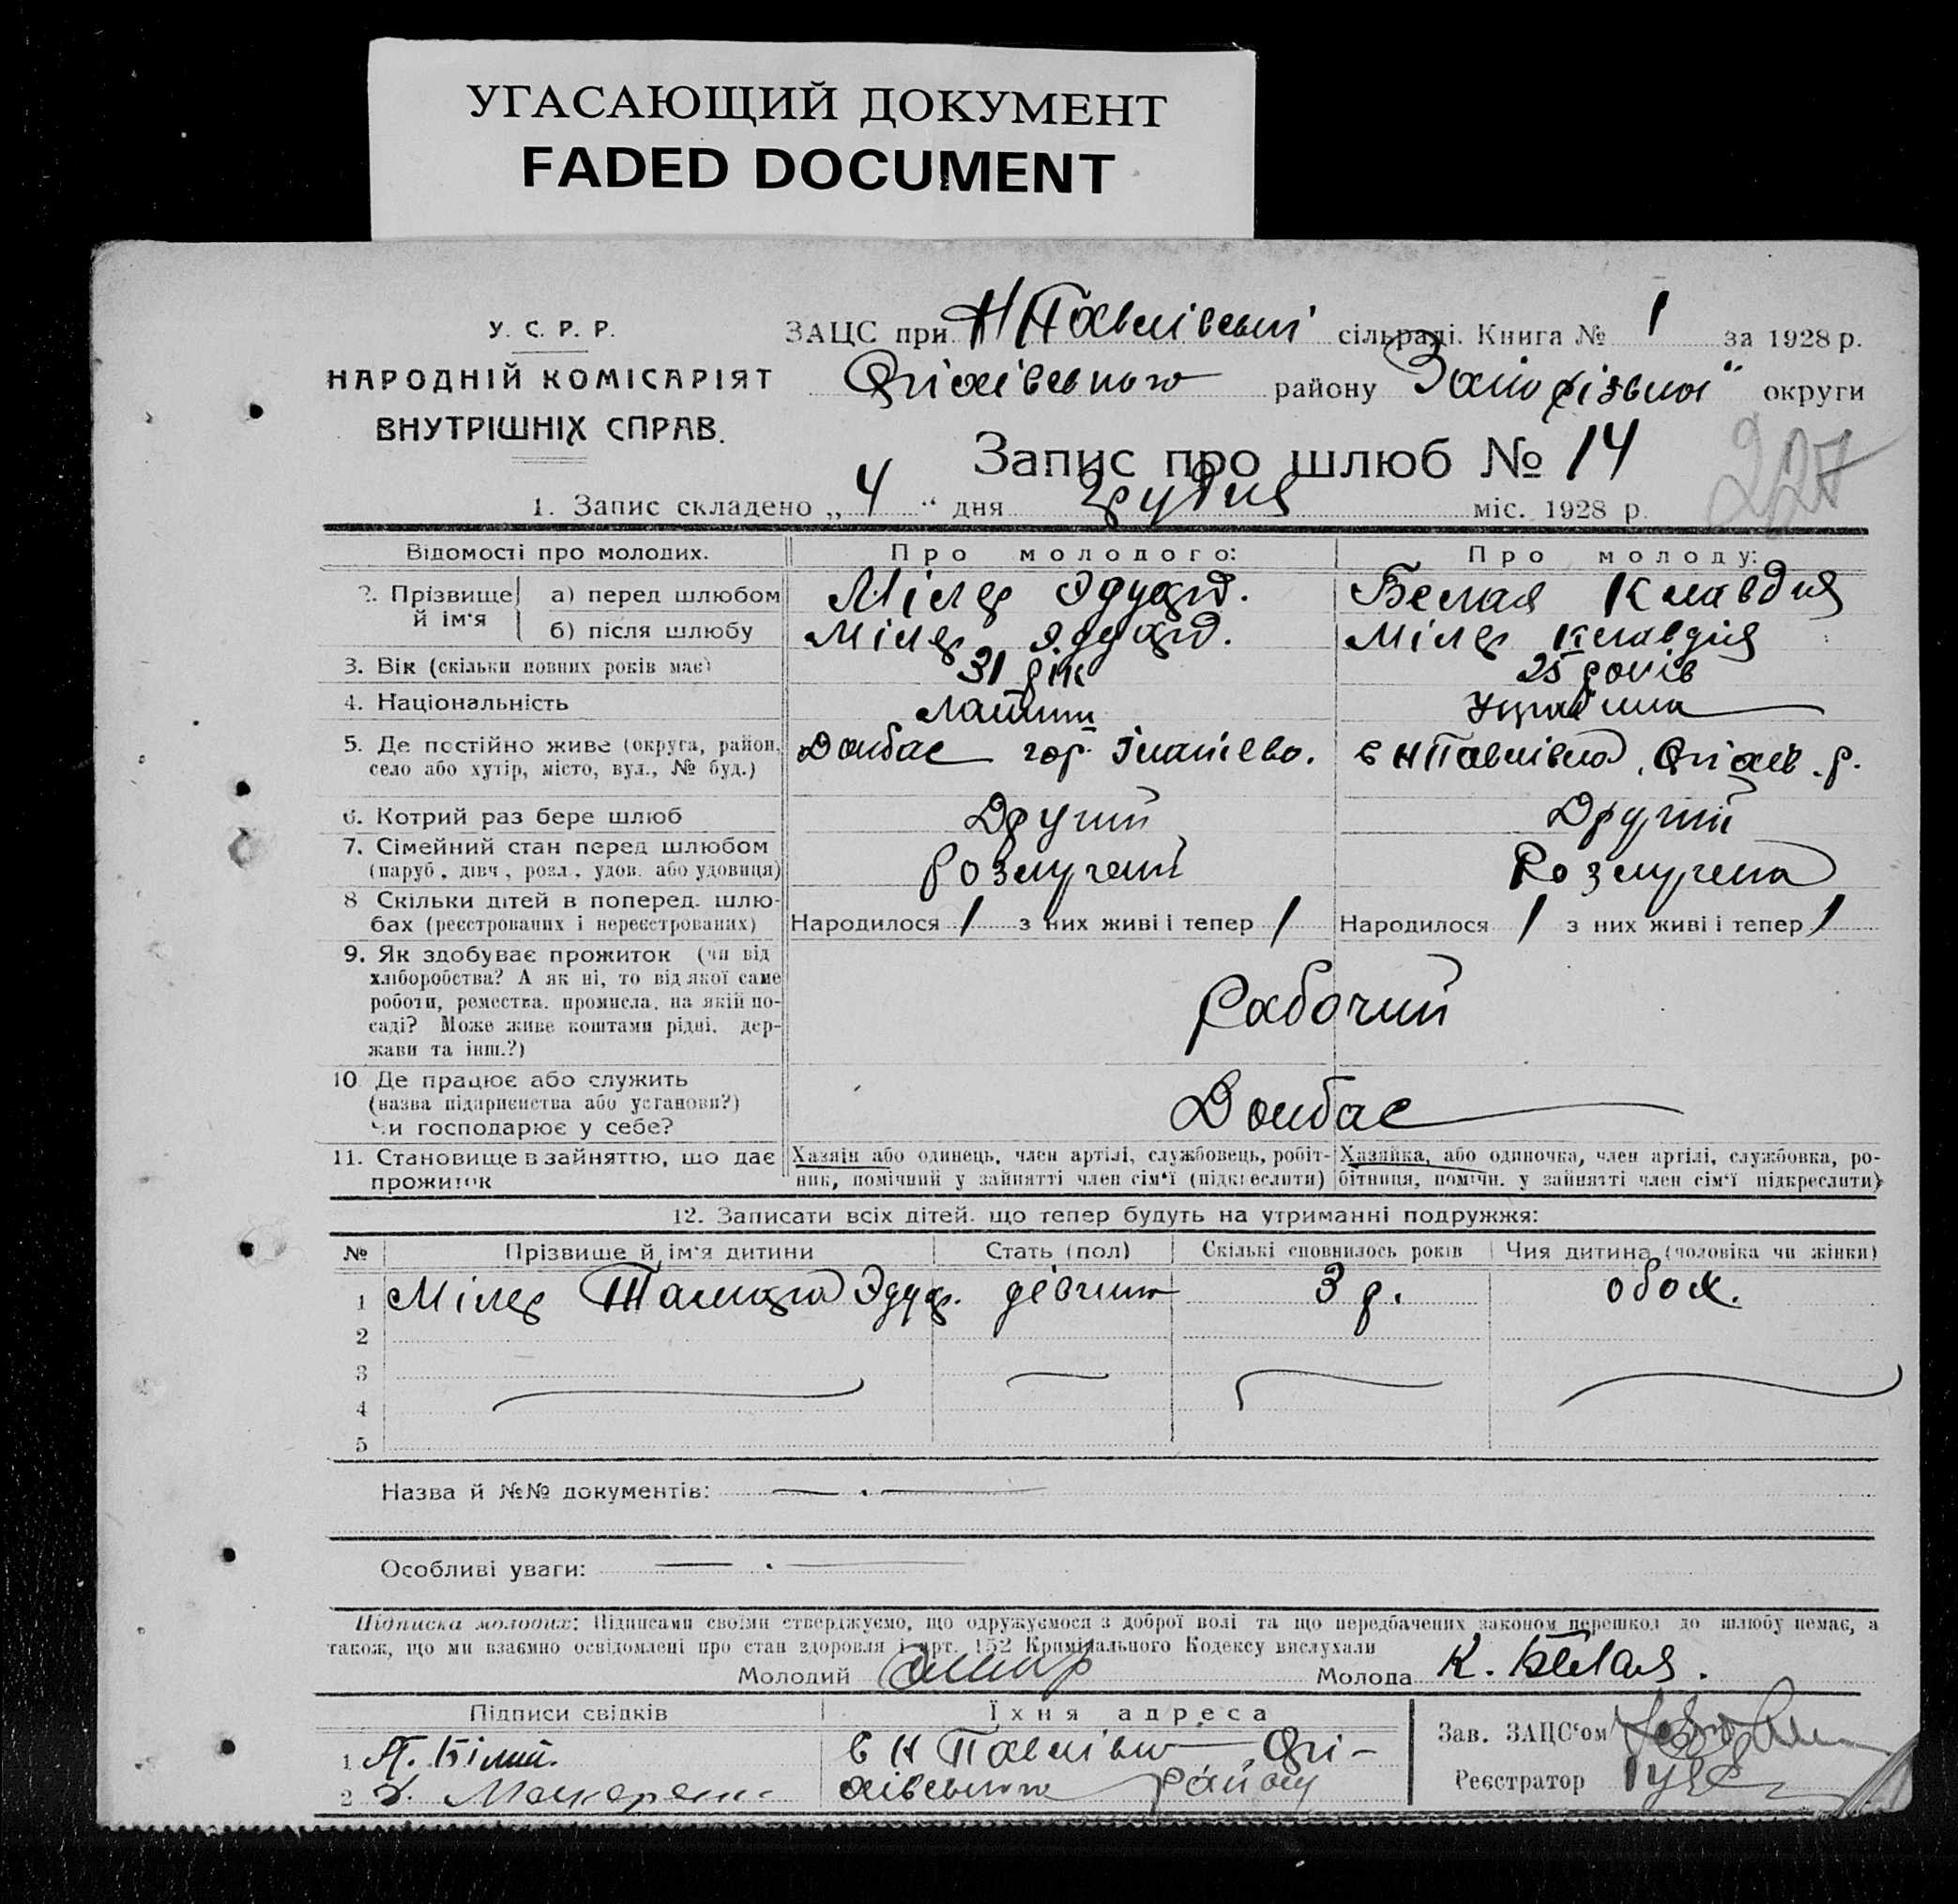 УГАСАЮЩИЙ ДОКУМЕНТ
FADED DOCUMENT
У. С. Р. Р.
НАРОДНІЙ КОМІСАРІЯТ
ВНУТРІШНІХ СПРАВ.
ЗАЦС при Н Павлівській сільраді. Книга № 1 за 1928 р.
Оріхівського району Запорізької округи
Запис про шлюб № 14
227
1. Запис складено „ 4 “ дня грудня міс. 1928 р.
Відомості про молодих. Про молодого: Про молоду:
2. Прізвище й ім'я
а) перед шлюбом Мілер Эдуард. Белая Клавдия
б) після шлюбу Мілер Эдуард. Мілер Клавдія
3. Вік (скільки повних років має) 31 рік 25 років
4. Національність Латиш Українка
5. Де постійно живе (округа, район, село або хутір, місто, вул., № буд.) Донбас гор. с Н Павлівка, Оріхів. р.
6. Котрий раз бере шлюб Другий Другий
7. Сімейний стан перед шлюбом (паруб., дівч., розл., удов. або удовиця) Розлучений Розлучена
8 Скільки дітей в поперед. шлюбах (реєстрованих і нереєстрованих) Народилося 1 з них живі і тепер 1 Народилося 1 з них живі і тепер 1
9. Як здобуває прожиток (чи від
хліборобства? А як ні, то від якої саме
роботи, ремества, промисла, на якій по-
саді? Може живе коштами рідні, дер-
жави та інш.?) Рабочий
10. Де працює або служить
(назва підприємства або установи?)
Чи господарює у себе? Донбас
11. Становище в зайняттю, що дає прожиток
Хазяїн або одинець, член артілі, службовець, робіт-
ник, помічний у зайнятті член сім'ї (підкреслити)
Хазяйка, або одиночка, член артілі, службовка, ро-
бітниця, помічн. у зайнятті член сім'ї підкреслити)
12. Записати всіх дітей, що тепер будуть на утриманні подружжя:
№ Прізвище й ім'я дитини Стать (пол) Скількі сповнилось років Чия дитина (чоловіка чи жінки)
1 Мілер Тамара Эдуар. дівчина 3 р. обох.
2
3
4
5
Назва й №№ документів:
Особливі уваги:
Підписка молодих: Підписами своїми стверджуємо, що одружуємося з доброї волі та що передбачених законом перешкод до шлюбу немає, а
також, що ми взаємно освідомлені про стан здоровля і арт. 152 Кримінального Кодексу вислухали
Молодий Молода К. Белая.
Підписи свідків Їхня адреса
1 Білий. с Н Павлівка Орі-
2 хівського району
Зав. ЗАЦС'ом
Реєстратор